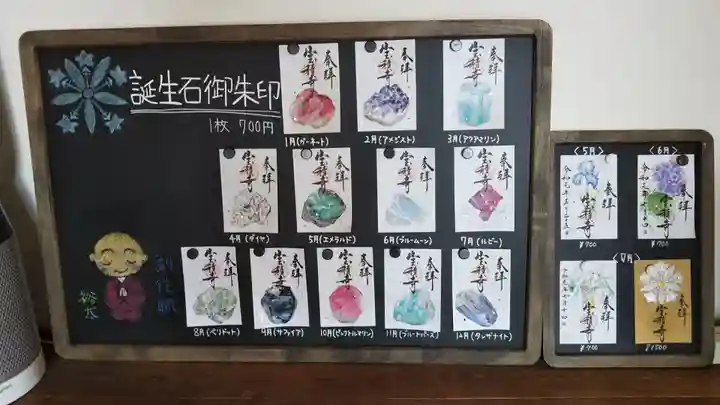 誕生石御朱印
1枚 700円
奉拝
宝積寺
1月(ガーネット)
奉拝
宝積寺
2月(アメジスト)
奉拝
宝積寺
3月(アクアマリン)
奉拝
宝積寺
4月(ダイヤ)
奉拝
宝積寺
5月(エメラルド)
奉拝
宝積寺
6月(ブルームーン)
奉拝
宝積寺
7月(ルビー)
奉拝
宝積寺
8月(ペリドット)
奉拝
宝積寺
9月(サファイア)
奉拝
宝積寺
10月(ピンクトルマリン)
奉拝
宝積寺
11月(ブルートパーズ)
奉拝
宝積寺
12月(タンザナイト)
〈5月〉
奉拝
宝積寺
¥700
〈6月〉
奉拝
宝積寺
¥700
〈7月〉
奉拝
宝積寺
¥700
奉拝
宝積寺
¥1500